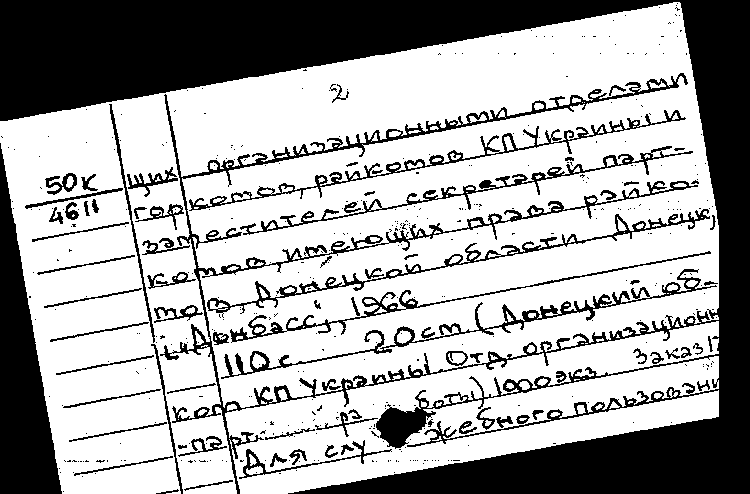 2
50к
4611
щих организационными отделами
горкомов, райкомов КП Украины и
заместителей секретарей парт-
комов, имеющих права райко-
мов, Донецкой области. Донецк,
"Донбасс", 1966
110 с. 20 см. (Донецкий об-
ком КП Украины. Отд. организационн
-парт. ра боты) 1000 экз.
Для слу жебного пользовани